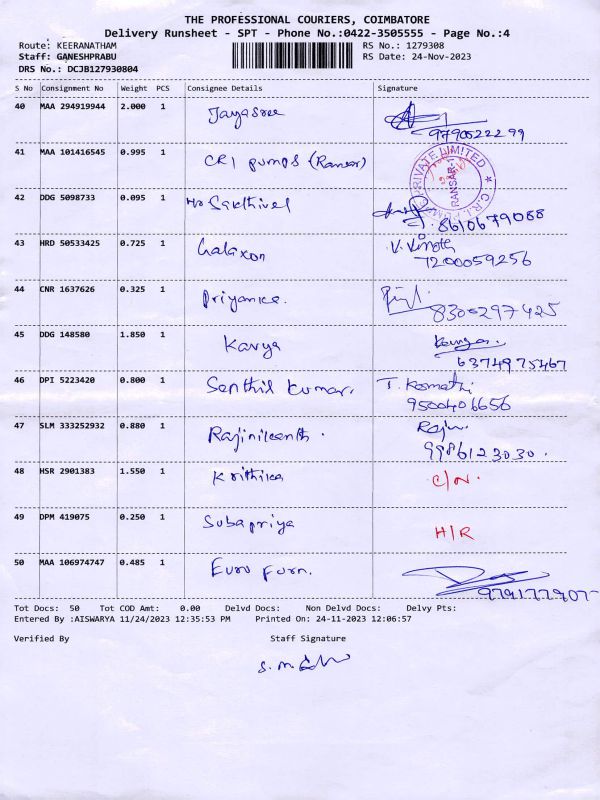 THE PROFESSIONAL COURIERS, COIMBATORE
Delivery Runsheet - SPT - Phone No.:0422-3505555 - Page No.:4
Route: KEERANATHAM RS No.: 1279308
Staff: GANESHPRABU RS Date: 24-Nov-2023
DRS No.: DCJB127930804
S No Consignment No Weight PCS Consignee Details Signature
40 MAA 294919944 2.000 1 Jayasree
9790522299
41 MAA 101416545 0.995 1 CRI pumps (Ransar)
PRIVATE LIMITED ★ C.R.I. PUMPS
RANSAR-1
42 DDG 5098733 0.095 1 Sakthivel
8610679088
43 HRD 50533425 0.725 1 Galaxon V. Vinoth
7200059256
44 CNR 1637626 0.325 1 Priyanka.
8305297425
45 DDG 148580 1.850 1 Kavya
6374975467
46 DPI 5223420 0.800 1 Senthil kumar. T. Komathi
9500406656
47 SLM 333252932 0.880 1 Rajinikanth. Raju.
9986123030.
48 HSR 2901383 1.550 1 Krithika C/N.
49 DPM 419075 0.250 1 Subapriya H/R
50 MAA 106974747 0.485 1 Euro Furn.
979177907
Tot Docs: 50 Tot COD Amt: 0.00 Delvd Docs: Non Delvd Docs: Delvy Pts:
Entered By :AISWARYA 11/24/2023 12:35:53 PM Printed On: 24-11-2023 12:06:57
Verified By Staff Signature